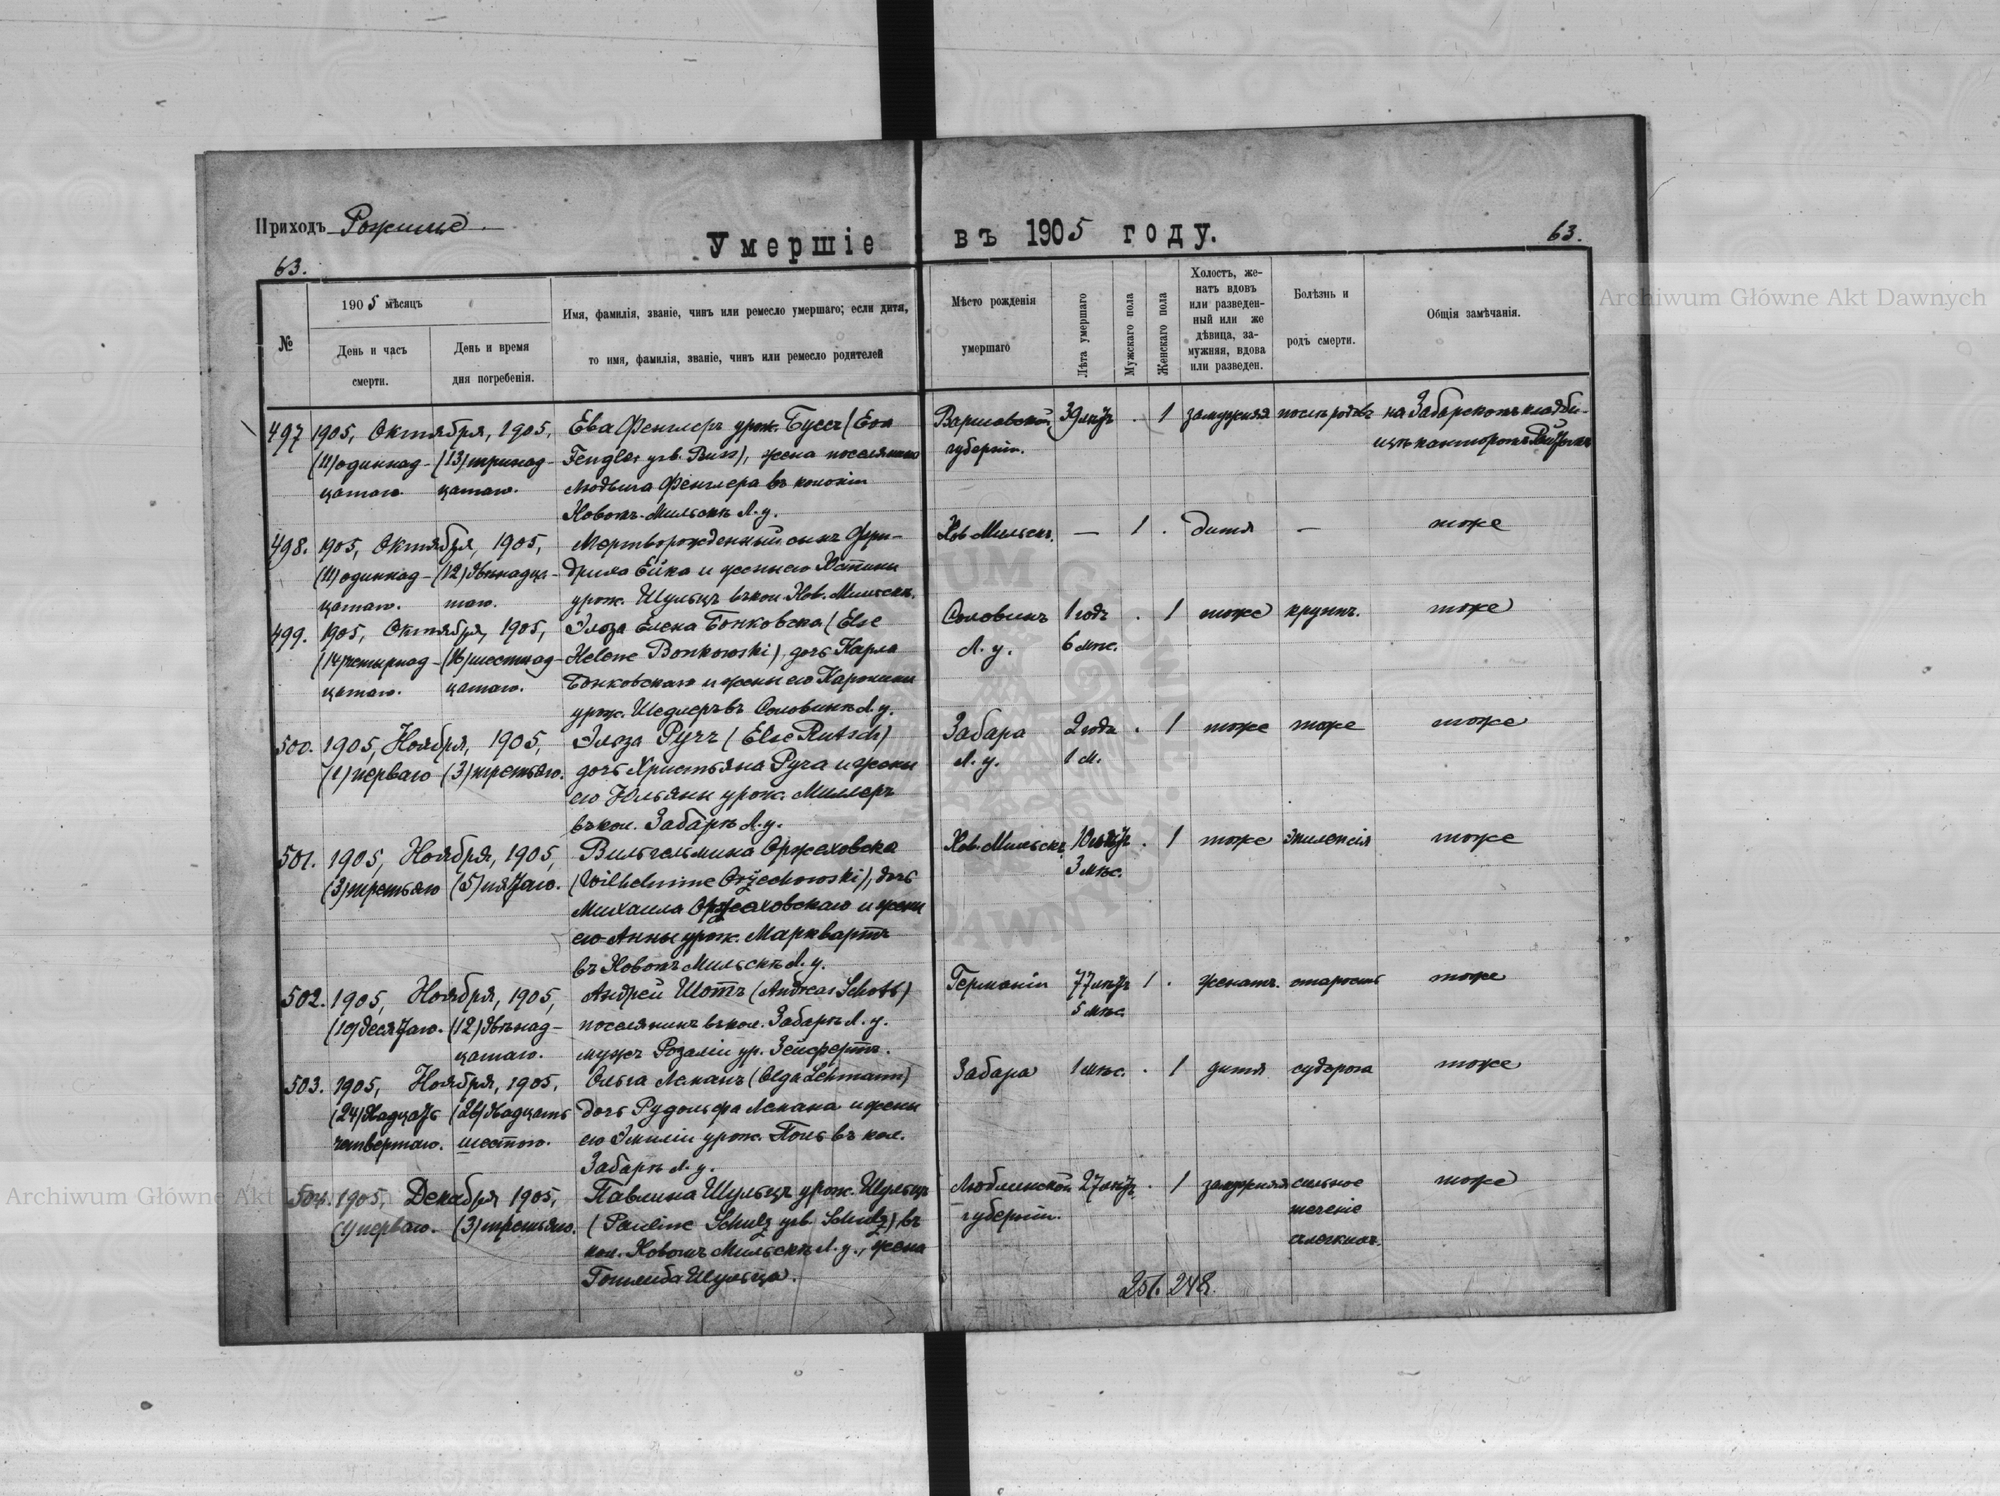 Приходъ Рожище.
Умершіе въ 1905 году.
63.
63.
№
1905 мѣсяцъ
День и часъ смерти.
День и время дня погребенія.
Имя, фамилія, званіе, чинъ или ремесло умершаго; если дитя,
то имя, фамилія, званіе, чинъ или ремесло родителей
Мѣсто рожденія умершаго
Лѣта умершаго
Мужскаго пола
Женскаго пола
Холостъ, же-
натъ вдовъ
или разведен-
ный или же
дѣвица, за-
мужняя, вдова
или разведен.
Болѣзнь и
родъ смерти.
Общія замѣчанія.
Archiwum Główne Akt Dawnych
497 1905, Октября, 1905, Ева Фенглеръ урож. Буссъ (Eva Варшавской 39 лѣтъ . 1 замужняя послѣ родовъ на Забарскомъ кладби-
(11) одиннад- (13) тринад- Fengler geb. Buss), жена поселянина губерніи. щѣ канторомъ
цатаго. цатаго. Людвига Фенглера въ колоніи
Новомъ-Мильскѣ Л. у.
498. 1905, Октября, 1905, Мертворожденный сынъ Фри- Нов. Мильскъ. — 1 . дитя — тоже
(11) одиннад- (12) двѣнадца- дриха Ейка и жены его Юстины
цатаго. таго. урож. Шульцъ въ кол. Нов. Мильскѣ.
499. 1905, Октября, 1905, Элоза Елена Бонковска (Else Соловинъ 1 годъ . 1 тоже крупъ. тоже
(14) четырнад- (16) шестнад- Helene Bonkowski), дочь Карла Л. у. 6 мѣс.
цатаго. цатаго. Бонковскаго и жены его Каролины
урож. Шедлеръ въ Соловинѣ Л. у.
500. 1905, Ноября, 1905, Элоза Ручъ (Else Rutsch) Забара 2 года . 1 тоже тоже тоже
(1) перваго (3) третьяго. дочь Христьяна Руча и жены Л. у. 1 м.
его Юльяны урож. Миллеръ
въ кол. Забарѣ Л. у.
501. 1905, Ноября, 1905, Вильгельмина Оржеховска Нов. Мильскъ 10 лѣтъ . 1 тоже эпилепсія тоже
(3) третьяго (5) пятаго. (Wilhelmine Orżechowski), дочь 3 мѣс.
Михаила Оржеховскаго и жены
его Анны урож. Марквартъ
въ Новомъ Мильскѣ Л. у.
502. 1905, Ноября, 1905, Андрей Шотъ (Andreas Schott) Германіи 77 лѣтъ 1 . женатъ. старость тоже
(10) десятаго. (12) двѣнад- поселянинъ въ кол. Забарѣ Л. у. 5 мѣс.
цатаго. мужъ Розаліи ур. Зейфертъ.
503. 1905, Ноября, 1905, Ольга Леманъ (Olga Lehmann) Забара 1 мѣс. . 1 дитя судорога тоже
(24) двадцать (26) двадцать дочь Рудольфа Лемана и жены
четвертаго. шестого. его Эмиліи урож. Поль въ кол.
Забарѣ Л. у.
504. 1905, Декабря 1905, Павлина Шульцъ урож. Шульцъ Люблинской 27 лѣтъ. . 1 замужняя сильное тоже
(1) перваго. (3) третьяго. (Pauline Schulz geb. Schulz) въ губерніи. теченіе
кол. Новомъ Мильскѣ Л. у., жена
Готлиба Шульца.
251. 248.
Archiwum Główne Akt Dawnych